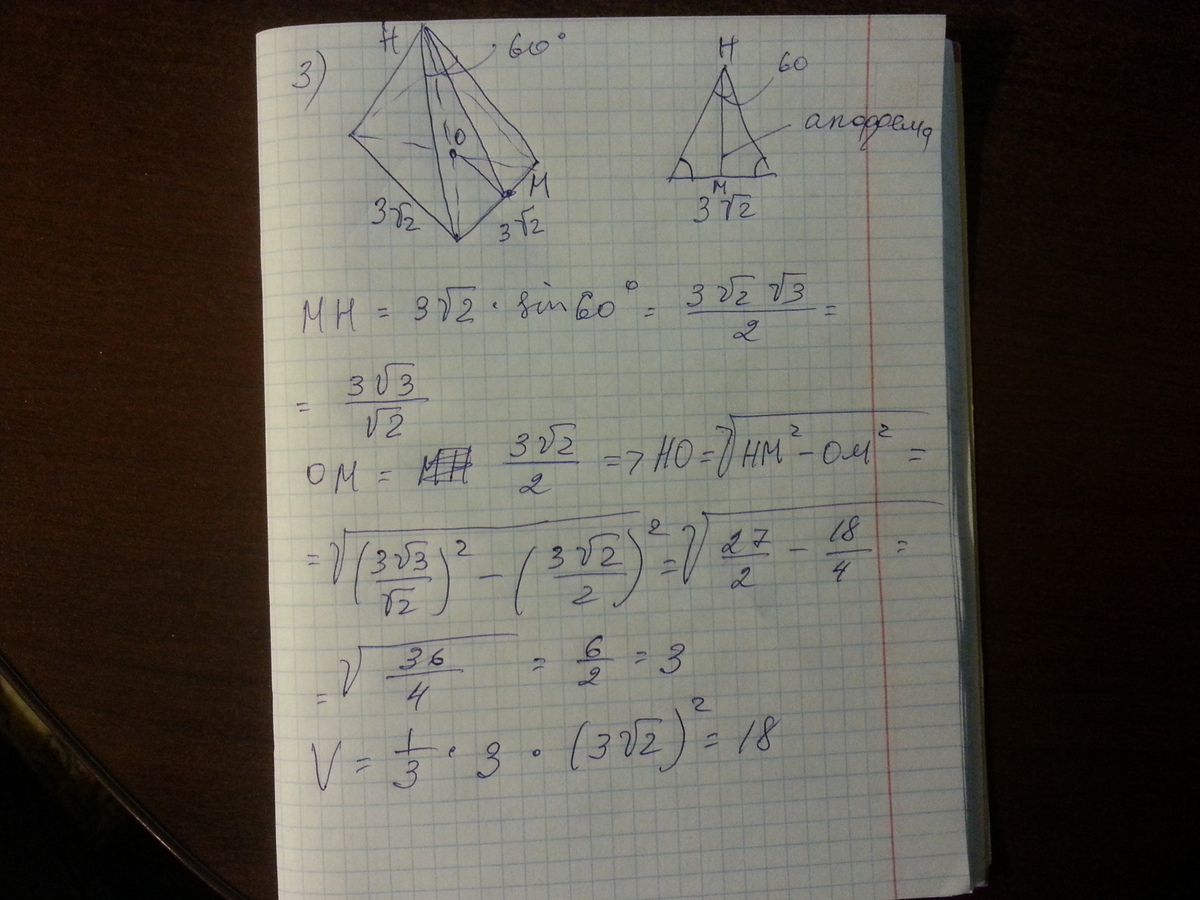 3)
H
60°
O
M
3√2
3√2
H
60
апофема
M
3√2
MH = 3√2 · sin60° = 3√2 √3 / 2 =
= 3√3 / √2
OM = 3√2 / 2 => HO = √(HM² - OM²) =
= √((3√3 / √2)² - (3√2 / 2)²) = √(27/2 - 18/4) =
= √(36/4) = 6/2 = 3
V = 1/3 · 3 · (3√2)² = 18